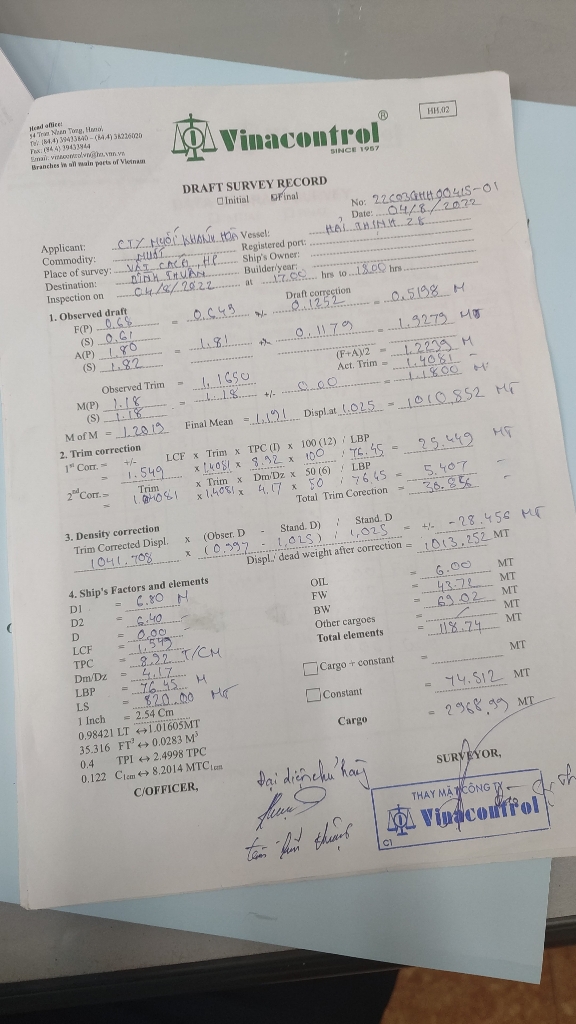 Head office:
54 Tran Nhan Tong, Hanoi
Tel: (84.4) 39433840 - (84.4) 38226020
Fax: (84.4) 39433844
Email: vinacontrolvn@hn.vnn.vn
Branches in all main ports of Vietnam
Vinacontrol®
SINCE 1957
HH.02
DRAFT SURVEY RECORD
Initial Final
No: 22C03GHH00415-01
Date: 04/8/2022
Applicant: CTY MUỐI KHÁNH HÒA Vessel: HẢI THỊNH 28
Commodity: MUỐI Registered port:
Place of survey: VẬT CÁCH, HP Ship's Owner:
Destination: NINH THUẬN Builder/year:
Inspection on 04/8/2022 at 17.00 hrs to 18.00 hrs
1. Observed draft Draft correction
F(P) 0.68 = 0.649 +/- 0.1252 = 0.5198 M
(S) 0.61
A(P) 1.80 = 1.81 +/- 0.1179 = 1.9279
(S) 1.82
(F+A)/2 = 1.2239 M
Observed Trim = 1.1650 Act. Trim = 1.4081
M(P) 1.18 = 1.18 +/- 0.00 = 1.1800
(S) 1.18
M of M = 1.2019 Final Mean = 1.191 Displ.at 1.025 = 1010.852 MT
2. Trim correction
LCF x Trim x TPC (I) x 100 (12) / LBP
1st Corr. = +/- 1.549 x 1.4081 x 8.92 x 100 / 76.45 = 25.449 MT
Trim x Trim x Dm/Dz x 50 (6) / LBP
2nd Corr. = 1.4081 x 1.4081 x 4.17 x 50 / 76.45 = 5.407
Total Trim Corection = 30.856
3. Density correction
Trim Corrected Displ. x (Obser. D - Stand. D) / Stand. D
1041.708 x (0.997 - 1,025) / 1,025 = +/- -28.456 MT
Displ./ dead weight after correction = 1013.252 MT
4. Ship's Factors and elements
D1 = 6.80 M
D2 = 6.40
D = 0.00
LCF = 1.549
TPC = 8.92 T/CM
Dm/Dz = 4.17
LBP = 76.45 M
LS = 820.00 MT
1 Inch = 2.54 Cm
0.98421 LT ↔ 1.01605MT
35.316 FT³ ↔ 0.0283 M³
0.4 TPI ↔ 2.4998 TPC
0.122 C1cm ↔ 8.2014 MTC1cm
OIL = 6.00 MT
FW = 43.72 MT
BW = 69.02 MT
Other cargoes = / MT
Total elements = 118.74 MT
Cargo + constant = MT
Constant = 74.512 MT
Cargo = 2968,99 MT
C/OFFICER,
Đại diện chủ hàng
SURVEYOR,
THAY MẶT CÔNG TY
Vinacontrol
C1